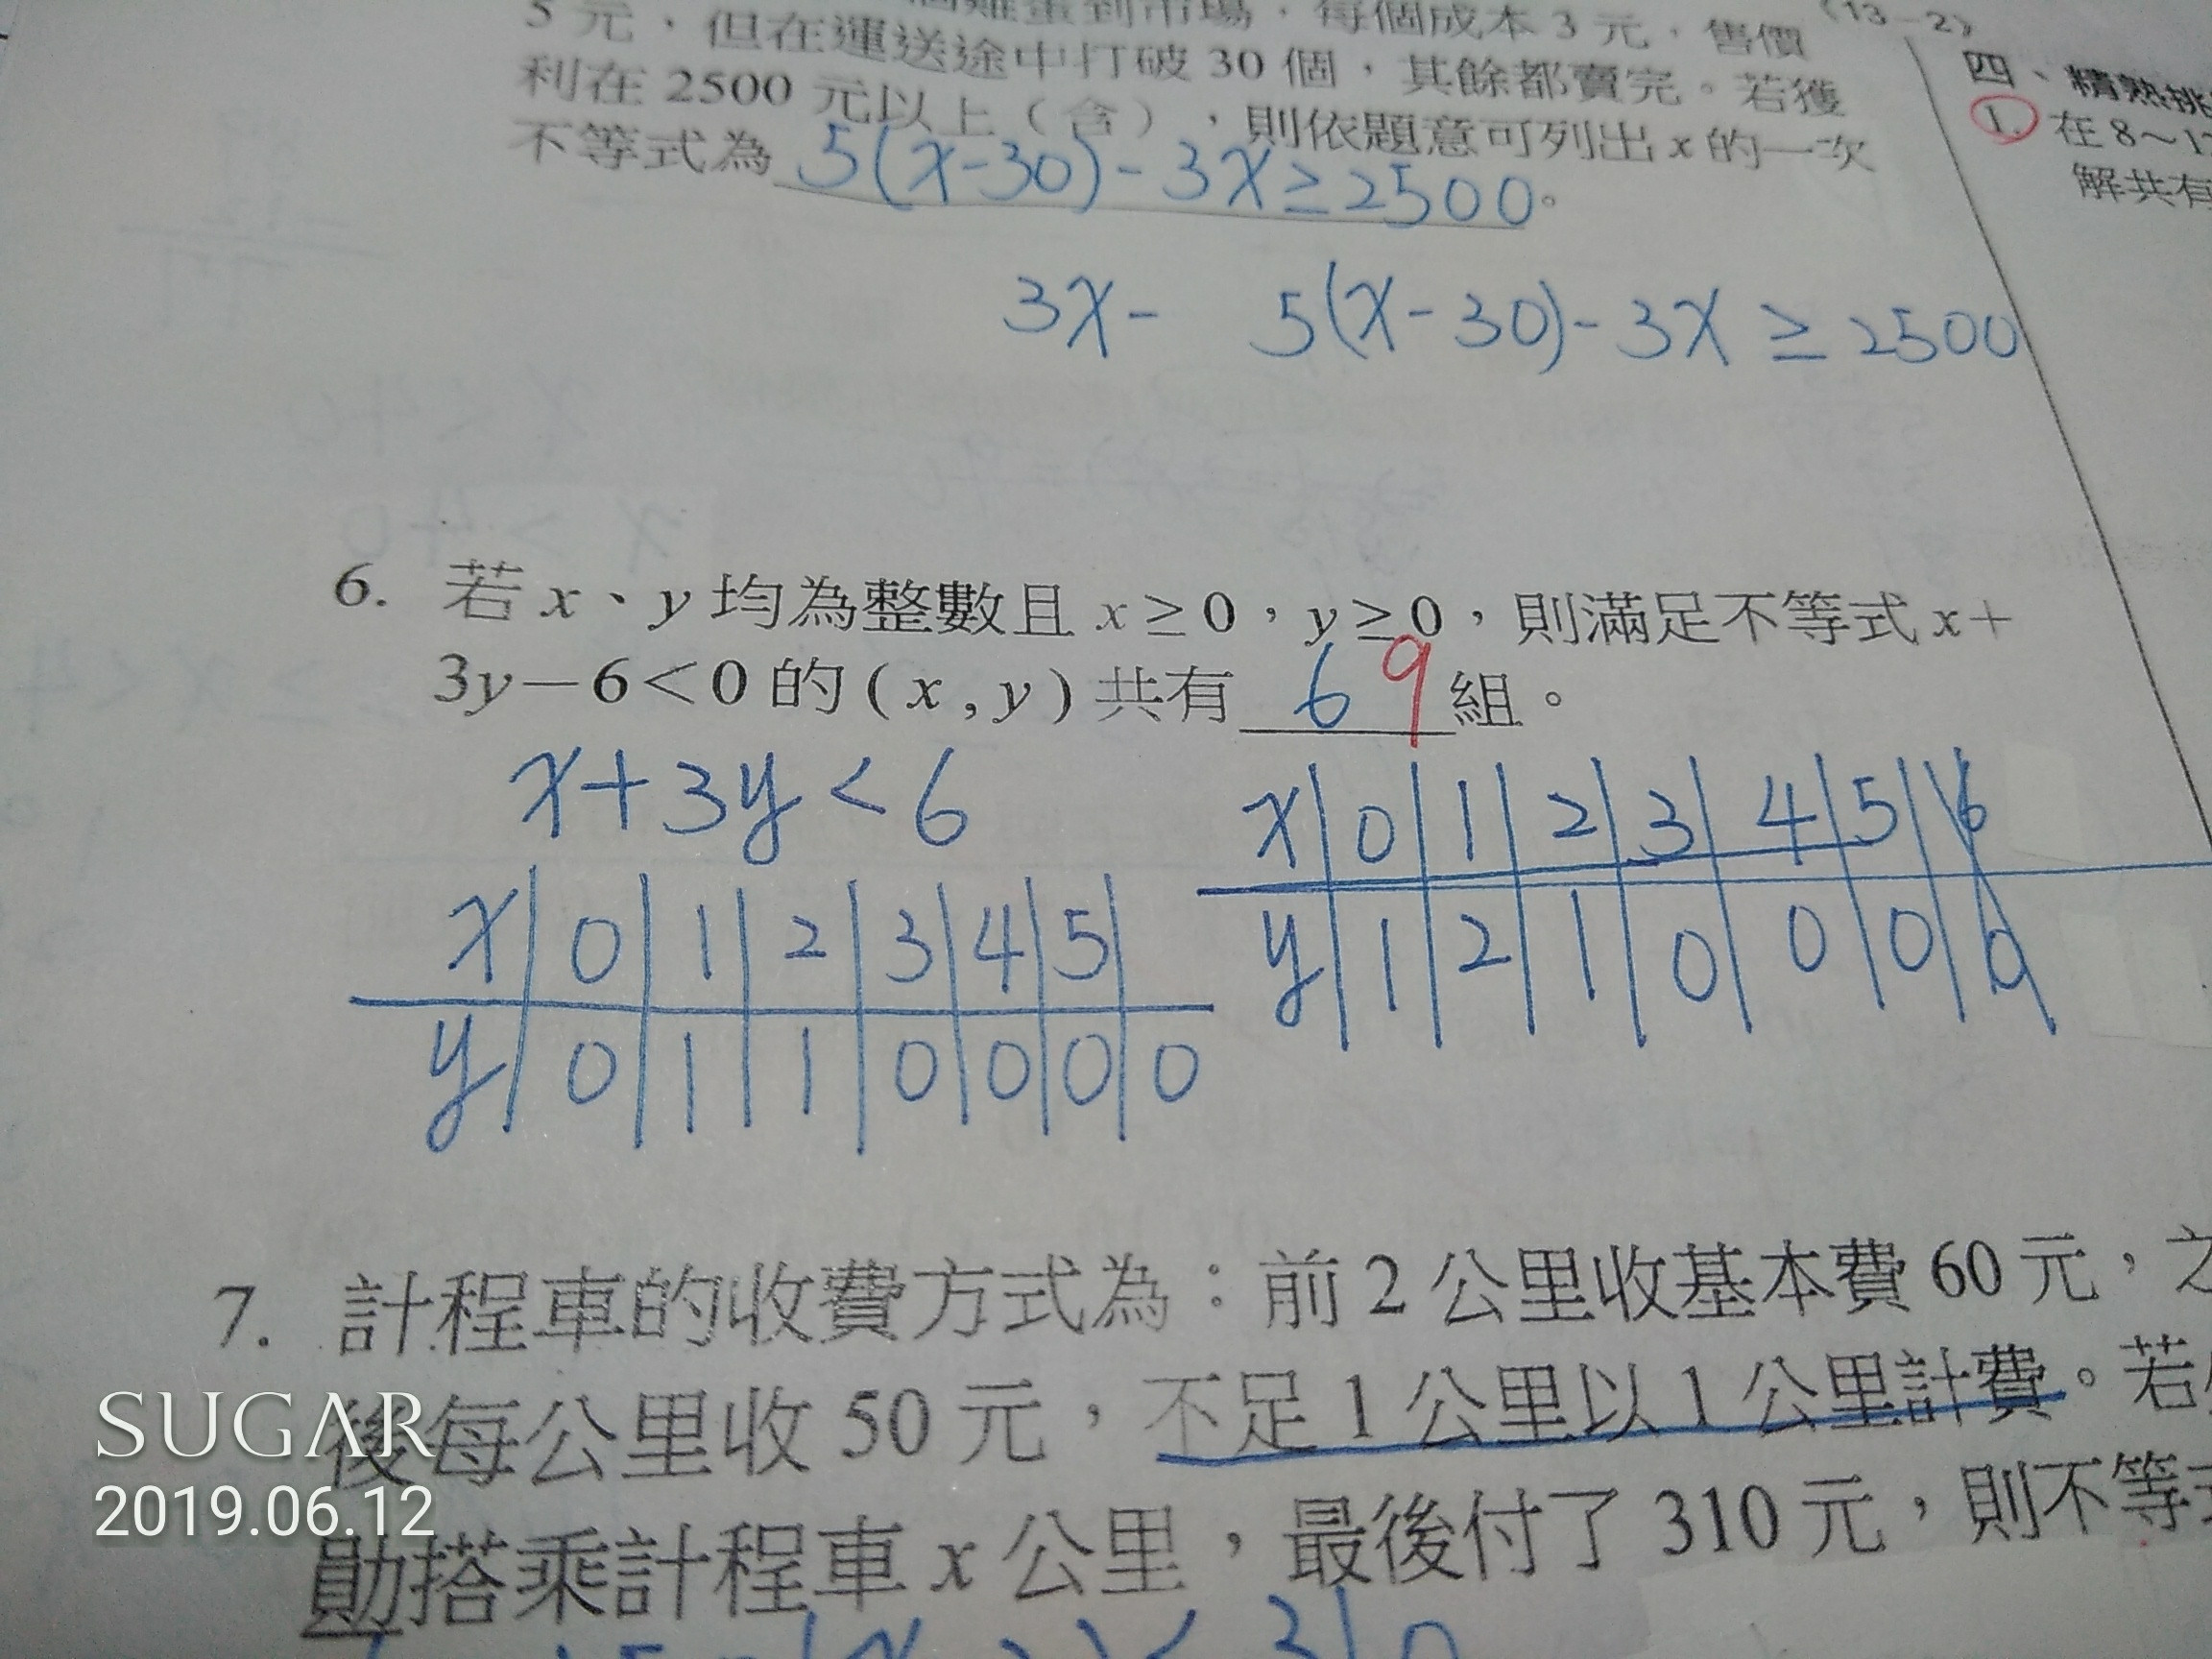 (13－2)
5 元，但在運送途中打破 30 個，其餘都賣完。若獲
利在 2500 元以上（含），則依題意可列出 x 的一次
不等式為 5(x-30)-3x≥2500。
3x- 5(x-30)-3x≥2500
四、精熟挑
1. 在 8～1
解共有
6. 若 x、y 均為整數且 x≥0，y≥0，則滿足不等式 x＋
3y－6＜0 的 ( x , y ) 共有 6 9 組。
x+3y<6
x 0 1 2 3 4 5
y 0 1 1 0 0 0 0
x 0 1 2 3 4 5 6
y 1 2 1 0 0 0 0
7. 計程車的收費方式為：前 2 公里收基本費 60 元，之
後每公里收 50 元，不足 1 公里以 1 公里計費。若
勛搭乘計程車 x 公里，最後付了 310 元，則不等
SUGAR
2019.06.12